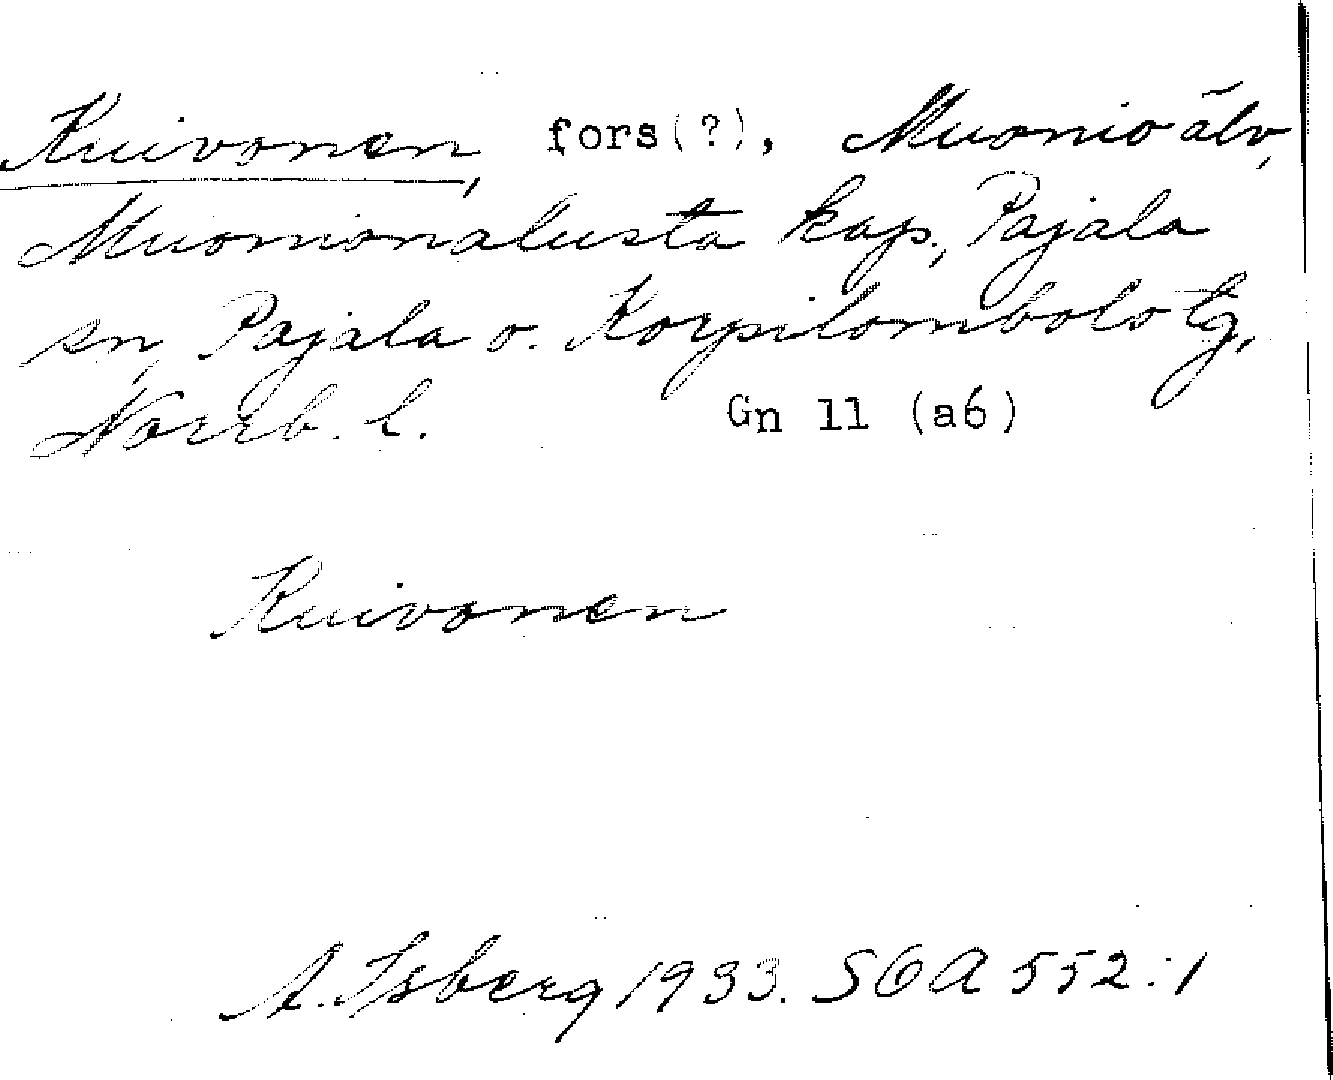 Kuivonen, fors(?), Muonio älv,
Muonionalusta kap., Pajala
sn, Pajala o. Korpilombolo tg,
Norrb. l. Gn 11 (a6)
Kuivonen
A. Isberg 1933. SOA 552:1